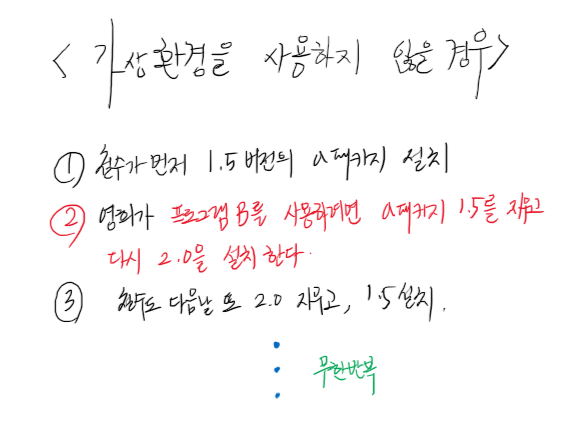 < 가상환경을 사용하지 않을 경우>
① 철수가 먼저 1.5 버전의 a패키지 설치
② 영희가 프로그램 B를 사용하려면 a패키지 1.5를 지우고
다시 2.0을 설치한다.
③ 철수도 다음날 또 2.0 지우고, 1.5 설치.
무한반복